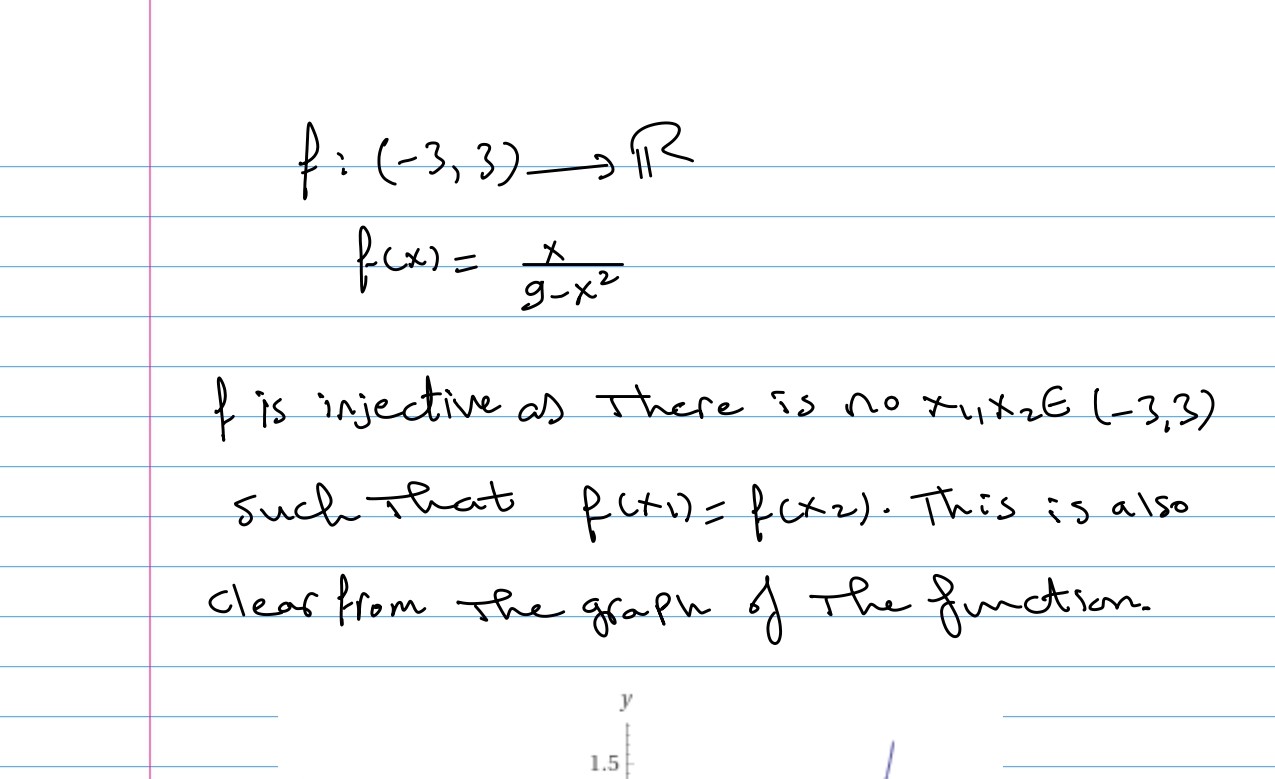 f: (-3, 3) → ℝ
f(x) = x / (9-x²)
f is injective as there is no x₁, x₂ ∈ (-3, 3)
such that f(x₁) = f(x₂). This is also
clear from the graph of the function.
y
1.5